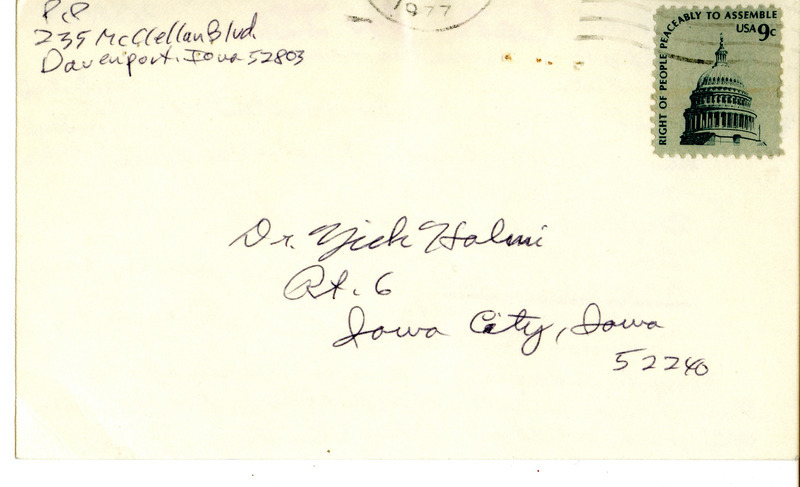 P.P
235 McClellan Blvd.
Davenport, Iowa 52803
1977
RIGHT OF PEOPLE PEACEABLY TO ASSEMBLE
USA 9c
Dr. Nick Halmi
Rt. 6
Iowa City, Iowa
52240